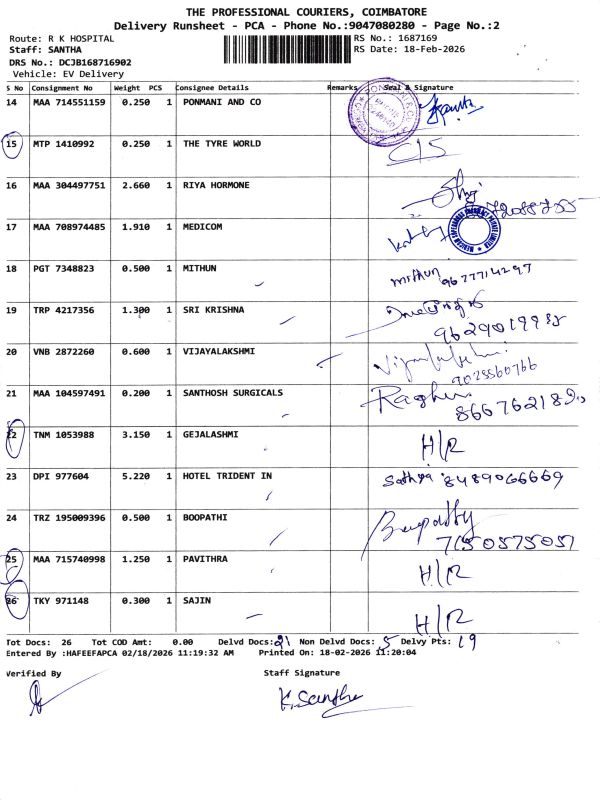 THE PROFESSIONAL COURIERS, COIMBATORE
Delivery Runsheet - PCA - Phone No.:9047080280 - Page No.:2
Route: R K HOSPITAL
RS No.: 1687169
Staff: SANTHA
RS Date: 18-Feb-2026
DRS No.: DCJB168716902
Vehicle: EV Delivery
S No Consignment No Weight PCS Consignee Details Remarks Seal & Signature
14 MAA 714551159 0.250 1 PONMANI AND CO
15 MTP 1410992 0.250 1 THE TYRE WORLD C/S
16 MAA 304497751 2.660 1 RIYA HORMONE
17 MAA 708974485 1.910 1 MEDICOM
18 PGT 7348823 0.500 1 MITHUN mithun
9677714297
19 TRP 4217356 1.300 1 SRI KRISHNA
9629019985
20 VNB 2872260 0.600 1 VIJAYALAKSHMI
9025560766
21 MAA 104597491 0.200 1 SANTHOSH SURGICALS Raghu
22 TNM 1053988 3.150 1 GEJALASHMI H/R
23 DPI 977604 5.220 1 HOTEL TRIDENT IN Sathya 8489066669
24 TRZ 195009396 0.500 1 BOOPATHI
7150575057
25 MAA 715740998 1.250 1 PAVITHRA H/R
26 TKY 971148 0.300 1 SAJIN H/R
Tot Docs: 26 Tot COD Amt: 0.00 Delvd Docs: 21 Non Delvd Docs: 5 Delvy Pts: 19
Entered By :HAFEEFAPCA 02/18/2026 11:19:32 AM Printed On: 18-02-2026 11:20:04
Verified By Staff Signature
K. Santha